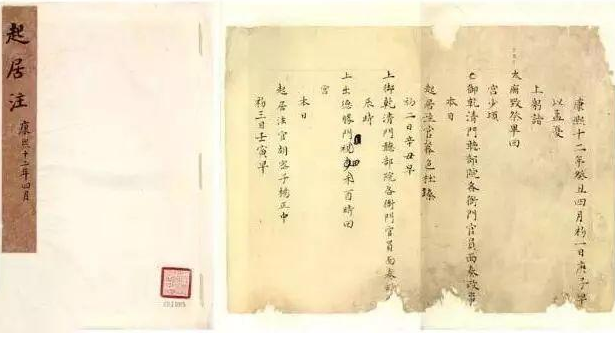 起居注
康熙十二年四月
康熙十二年癸丑四月初一日庚子早
以孟夏
上躬詣
太廟致祭畢回
宮少頃
上御乾清門聽部院各衙門官員面奏政事
本日
起居注官莫色杜臻
初二日辛丑早
上御乾清門聽部院各衙門官員面奏
辰時
上出德勝門視禾酉時回
宮
本日
起居注官胡密子楊正中
初三日壬寅早